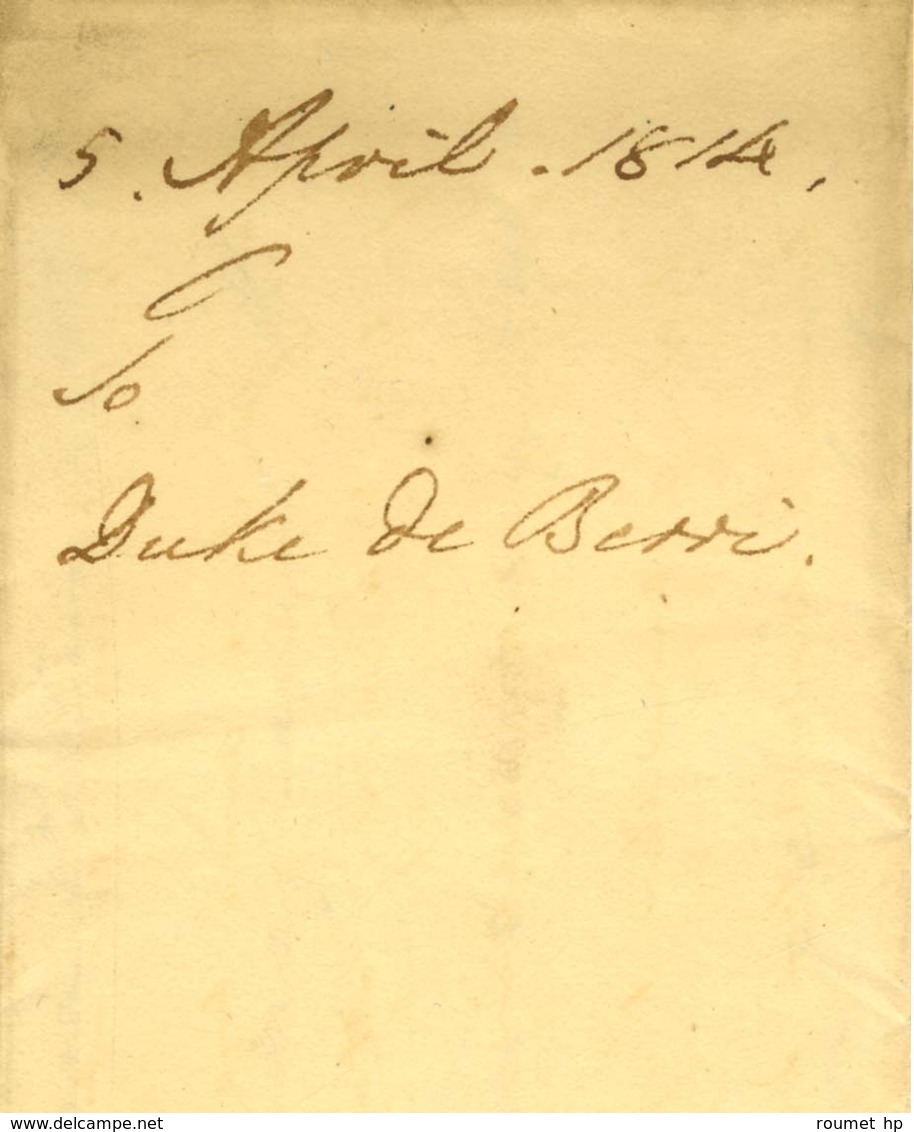 5. April. 1814,
To
Duke de Berri.
www.delcampe.net
roumet hp